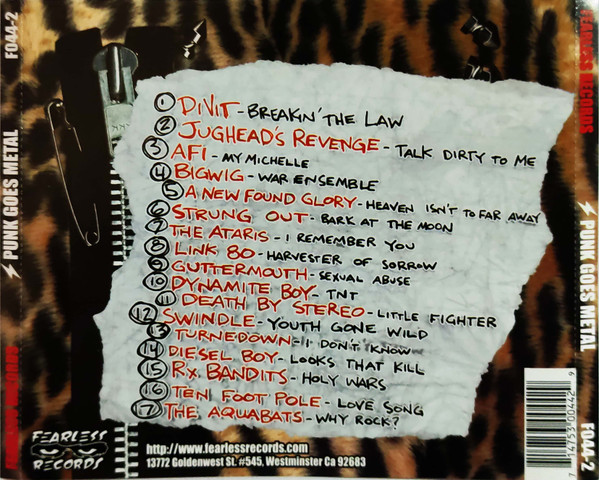 F044-2
PUNK GOES METAL
FEARLESS RECORDS
1 DIVIT - BREAKIN' THE LAW
2 JUGHEAD'S REVENGE - TALK DIRTY TO ME
3 AFI - MY MICHELLE
4 BIGWIG - WAR ENSEMBLE
5 A NEW FOUND GLORY - HEAVEN ISN'T TO FAR AWAY
6 STRUNG OUT - BARK AT THE MOON
7 THE ATARIS - I REMEMBER YOU
8 LINK 80 - HARVESTER OF SORROW
9 GUTTERMOUTH - SEXUAL ABUSE
10 DYNAMITE BOY - TNT
11 DEATH BY STEREO - LITTLE FIGHTER
12 SWINDLE - YOUTH GONE WILD
13 TURNEDOWN - I DON'T KNOW
14 DIESEL BOY - LOOKS THAT KILL
15 RX BANDITS - HOLY WARS
16 TEN FOOT POLE - LOVE SONG
17 THE AQUABATS - WHY ROCK?
FEARLESS
RECORDS
http://www.fearlessrecords.com
13772 Goldenwest St. #545, Westminster Ca 92683
FEARLESS RECORDS
PUNK GOES METAL
F044-2
7 14753 00442 9